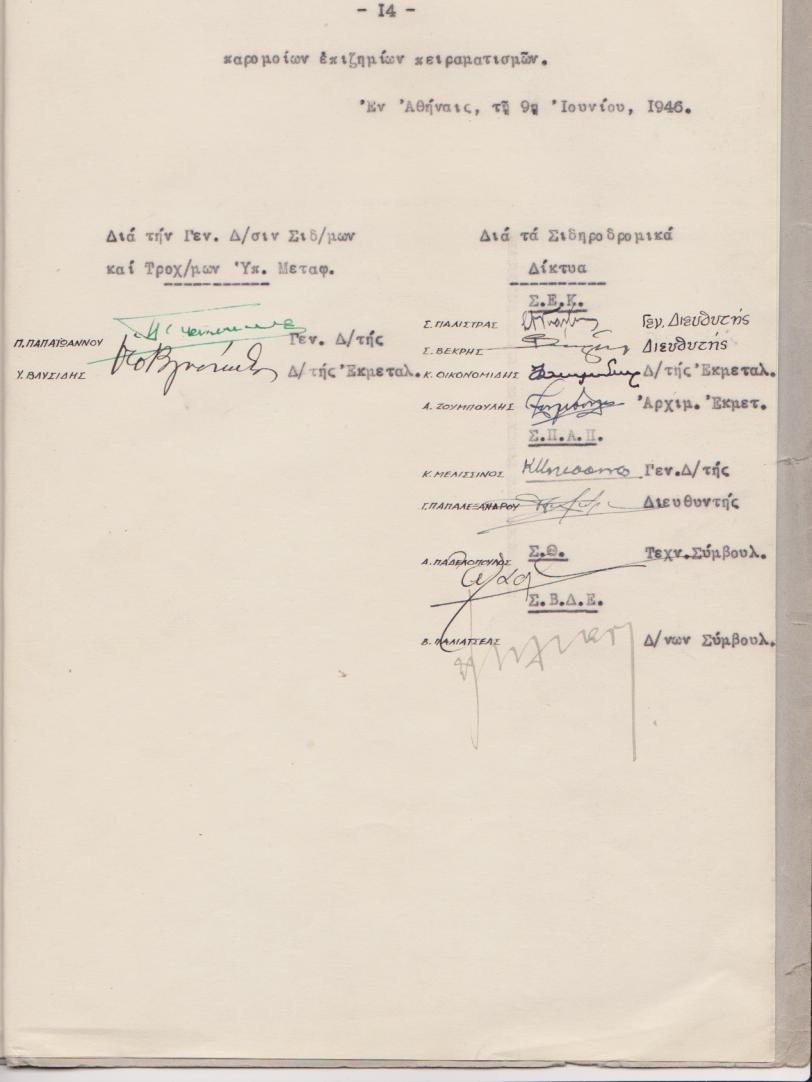 - I4 -
παρομοίων ἐπιζημίων πειραματισμῶν.
Ἐν Ἀθήναις, τῇ 9ῃ Ἰουνίου, I946.
Διά τήν Γεν. Δ/σιν Σιδ/μων
καί Τροχ/μων Ὑπ. Μεταφ.
Π. ΠΑΠΑΪΩΑΝΝΟΥ Γεν. Δ/τής
Υ. ΒΛΥΣΙΔΗΣ Δ/τής Ἐκμεταλ.
Διά τά Σιδηροδρομικά
Δίκτυα
Σ.Ε.Κ.
Σ. ΠΑΛΙΣΤΡΑΣ Γεν. Διευθυτής
Σ. ΒΕΚΡΗΣ Διευθυτής
Κ. ΟΙΚΟΝΟΜΙΔΗΣ Δ/τής Ἐκμεταλ.
Α. ΖΟΥΜΠΟΥΛΗΣ Ἀρχιμ. Ἐκμετ.
Σ.Π.Α.Π.
Κ. ΜΕΛΙΣΣΙΝΟΣ Γεν.Δ/τής
Γ. ΠΑΠΑΛΕΞΑΝΔΡΟΥ Διευθυντής
Σ.Θ.
Α. ΠΑΔΕΛΟΠΟΥΛΟΣ Τεχν.Σύμβουλ.
Σ.Β.Δ.Ε.
Β. ΠΑΛΙΑΤΣΕΑΣ Δ/νων Σύμβουλ.